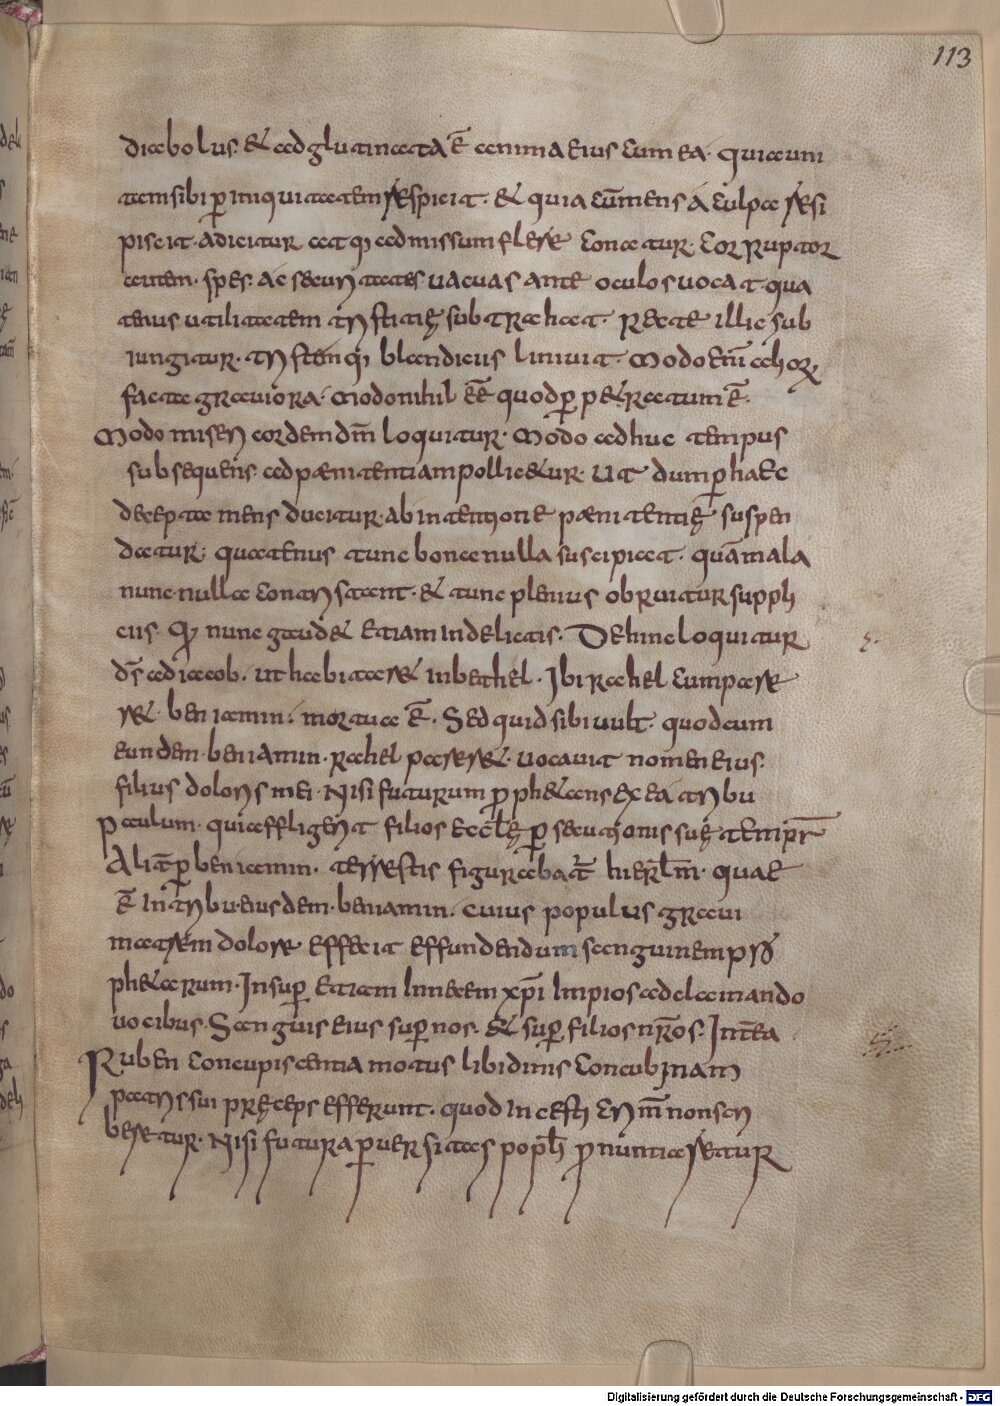 113
diabolus. & adglutinata ē anima eius cum ea. quia uni
tam sibi ꝑ iniquitatem respicit. & quia cū mens a culpa resi
piscit. adicitur atq; admissum flere conatur. corruptor
autem. spes. ac securitates uacuas ante oculos uocat. qua
tenus utilitatem tristitię subtrahat. recte illic sub
iungitur. tristemq; blandiciis liniuit. modo enī aliorū
facta grauiora. modo nihil eē quod ꝑpetratum ē.
modo misericordem dm̄ loquitur. modo adhuc tempus
subsequens. ad pænitentiam pollicetur. ut dum ꝑ haec
decepta mens ducitur. ab intentione pænitentię suspen
datur. quatenus tunc bona nulla suscipiat. quā mala
nunc nulla contristant. & tunc plenius obruitur suppli
ciis. q; nunc gaudet etiam in delictis. Dehinc loquitur
ds̄ ad iacob. ut habitaret in bethel. Ibi rachel cum pare
ret beniamin. mortua ē. Sed quid sibi uult. quod cum
eundem beniamin. rachel pareret. uocauit nomen eius.
filius doloris mei. Nisi futurum ꝓphetans ex ea tribu
paulum. qui affligerit filios eccl̄ę ꝑsecutionis suę tempr̄
Alit̄ ꝑ beniamin. terrestis figurabat̄ hierl̄m. quae
ē in tribu eiusdem. beniamin. cuius populus graui
matrem dolore effecit effundendum sanguinem pro
phetarum. Insuꝑ etiam in necem xp̄i impios adclamando
uocibus. Sanguis eius suꝑ nos. & suꝑ filios nr̄os. Interea
Ruben concupiscentia motus libidinis concubinam
patris sui pręceps efferunt. quod incesti crim̄ non scri
beretur. Nisi futura peruersitas popl̄i ꝓnuntiaretur
Digitalisierung gefördert durch die Deutsche Forschungsgemeinschaft - DFG